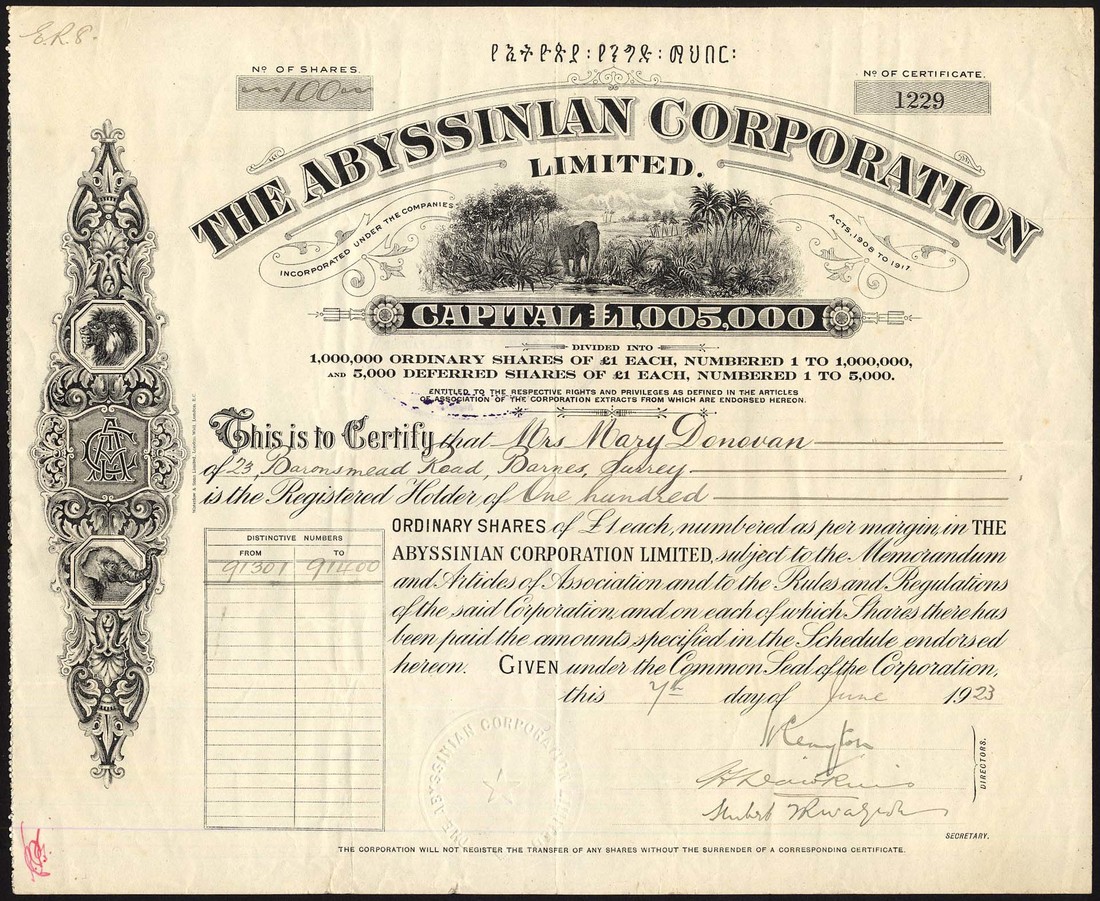 E.R.8.
የኢትዮጵያ፡የንግድ፡ማህበር፡
Nº OF SHARES.
100
Nº OF CERTIFICATE.
1229
THE ABYSSINIAN CORPORATION
LIMITED.
INCORPORATED UNDER THE COMPANIES
ACTS, 1908 TO 1917.
CAPITAL £1,005,000
DIVIDED INTO
1,000,000 ORDINARY SHARES OF £1 EACH, NUMBERED 1 TO 1,000,000,
AND 5,000 DEFERRED SHARES OF £1 EACH, NUMBERED 1 TO 5,000.
ENTITLED TO THE RESPECTIVE RIGHTS AND PRIVILEGES AS DEFINED IN THE ARTICLES
OF ASSOCIATION OF THE CORPORATION EXTRACTS FROM WHICH ARE ENDORSED HEREON.
This is to Certify that Mrs Mary Donovan
of 23, Baronsmead Road, Barnes, Surrey
is the Registered Holder of One hundred
ORDINARY SHARES of £1 each, numbered as per margin, in THE
ABYSSINIAN CORPORATION LIMITED, subject to the Memorandum
and Articles of Association and to the Rules and Regulations
of the said Corporation, and on each of which Shares there has
been paid the amounts specified in the Schedule endorsed
hereon. GIVEN under the Common Seal of the Corporation,
this 7th day of June 1923
DISTINCTIVE NUMBERS
FROM TO
91301 91400
DIRECTORS.
SECRETARY.
THE ABYSSINIAN CORPORATION
THE CORPORATION WILL NOT REGISTER THE TRANSFER OF ANY SHARES WITHOUT THE SURRENDER OF A CORRESPONDING CERTIFICATE.